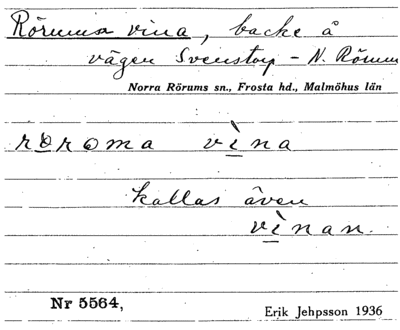 Rörums vina, backe å
vägen Svenstorp – N. Rörum
Norra Rörums sn., Frosta hd., Malmöhus län
röroma vìna
kallas även
vìnan.
Nr 5564,
Erik Jehpsson 1936